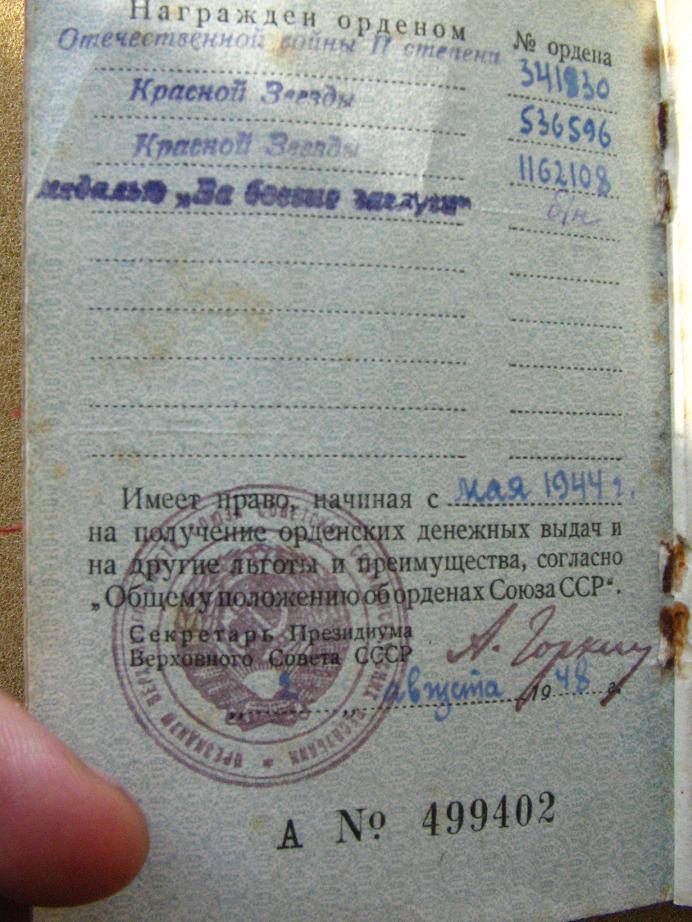 Награжден орденом
№ ордена
Отечественной войны II степени
341830
Красной Звезды
536596
Красной Звезды
1162108
медалью „За боевые заслуги"
б/н
Имеет право, начиная с мая 1944 г.
на получение орденских денежных выдач и
на другие льготы и преимущества, согласно
„Общему положению об орденах Союза ССР".
Секретарь Президиума
Верховного Совета СССР
А. Горкин
„ 2 „ августа 1948 г.
А № 499402